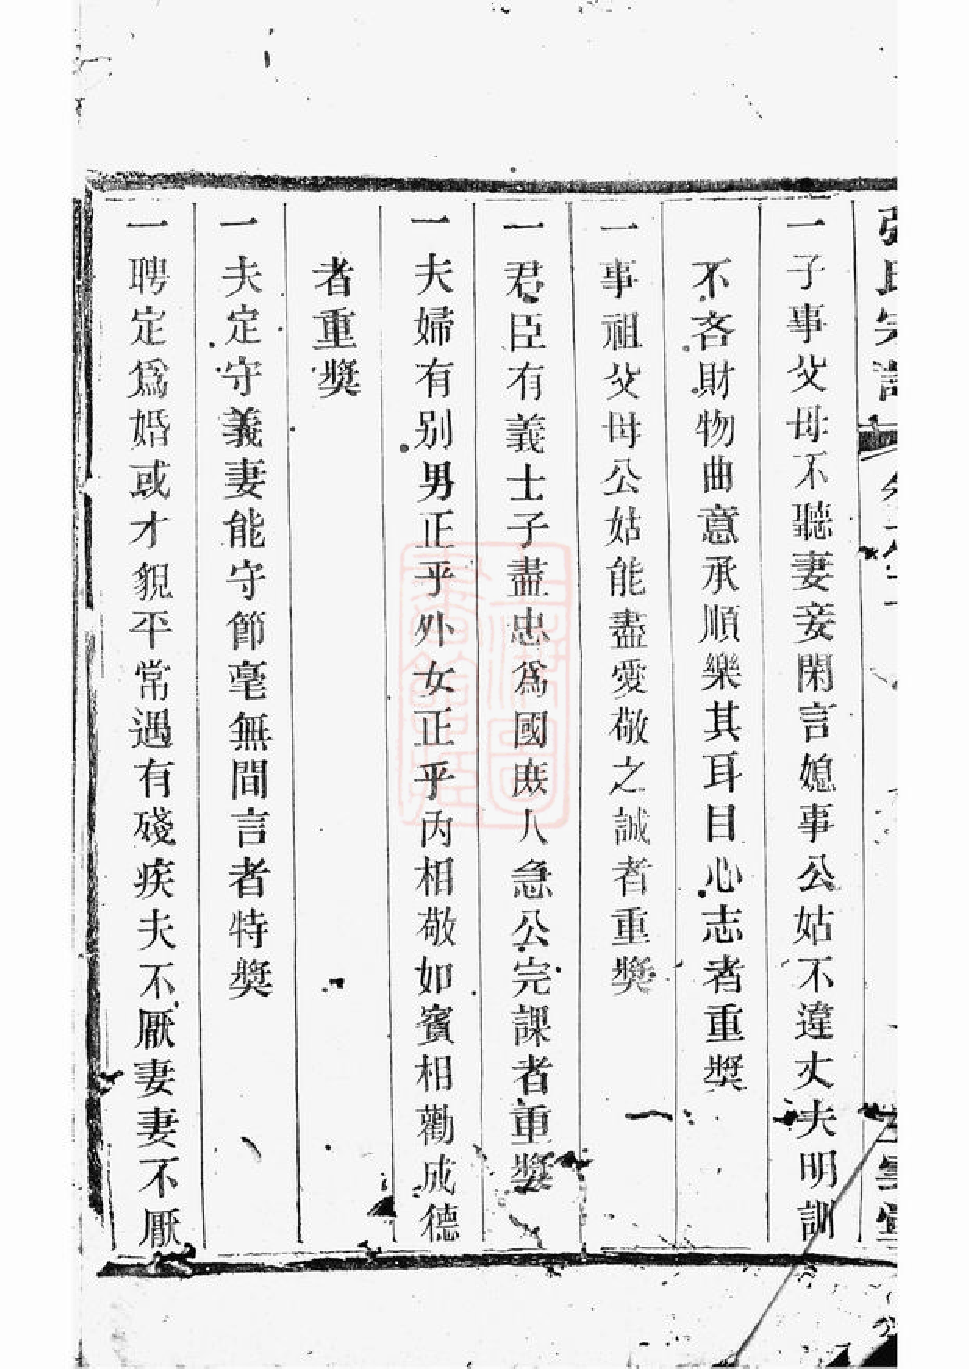 張氏宗譜
一子事父母不聽妻妾閑言媳事公姑不違丈夫明訓
不吝財物曲意承順樂其耳目心志者重獎
一事祖父母公姑能盡愛敬之誠者重獎
一君臣有義士子盡忠爲國庶人急公完課者重獎
一夫婦有别男正乎外女正乎内相敬如賓相勸成德
者重獎
一夫定守義妻能守節毫無間言者特獎
一聘定爲婚或才貌平常遇有殘疾夫不厭妻妻不厭